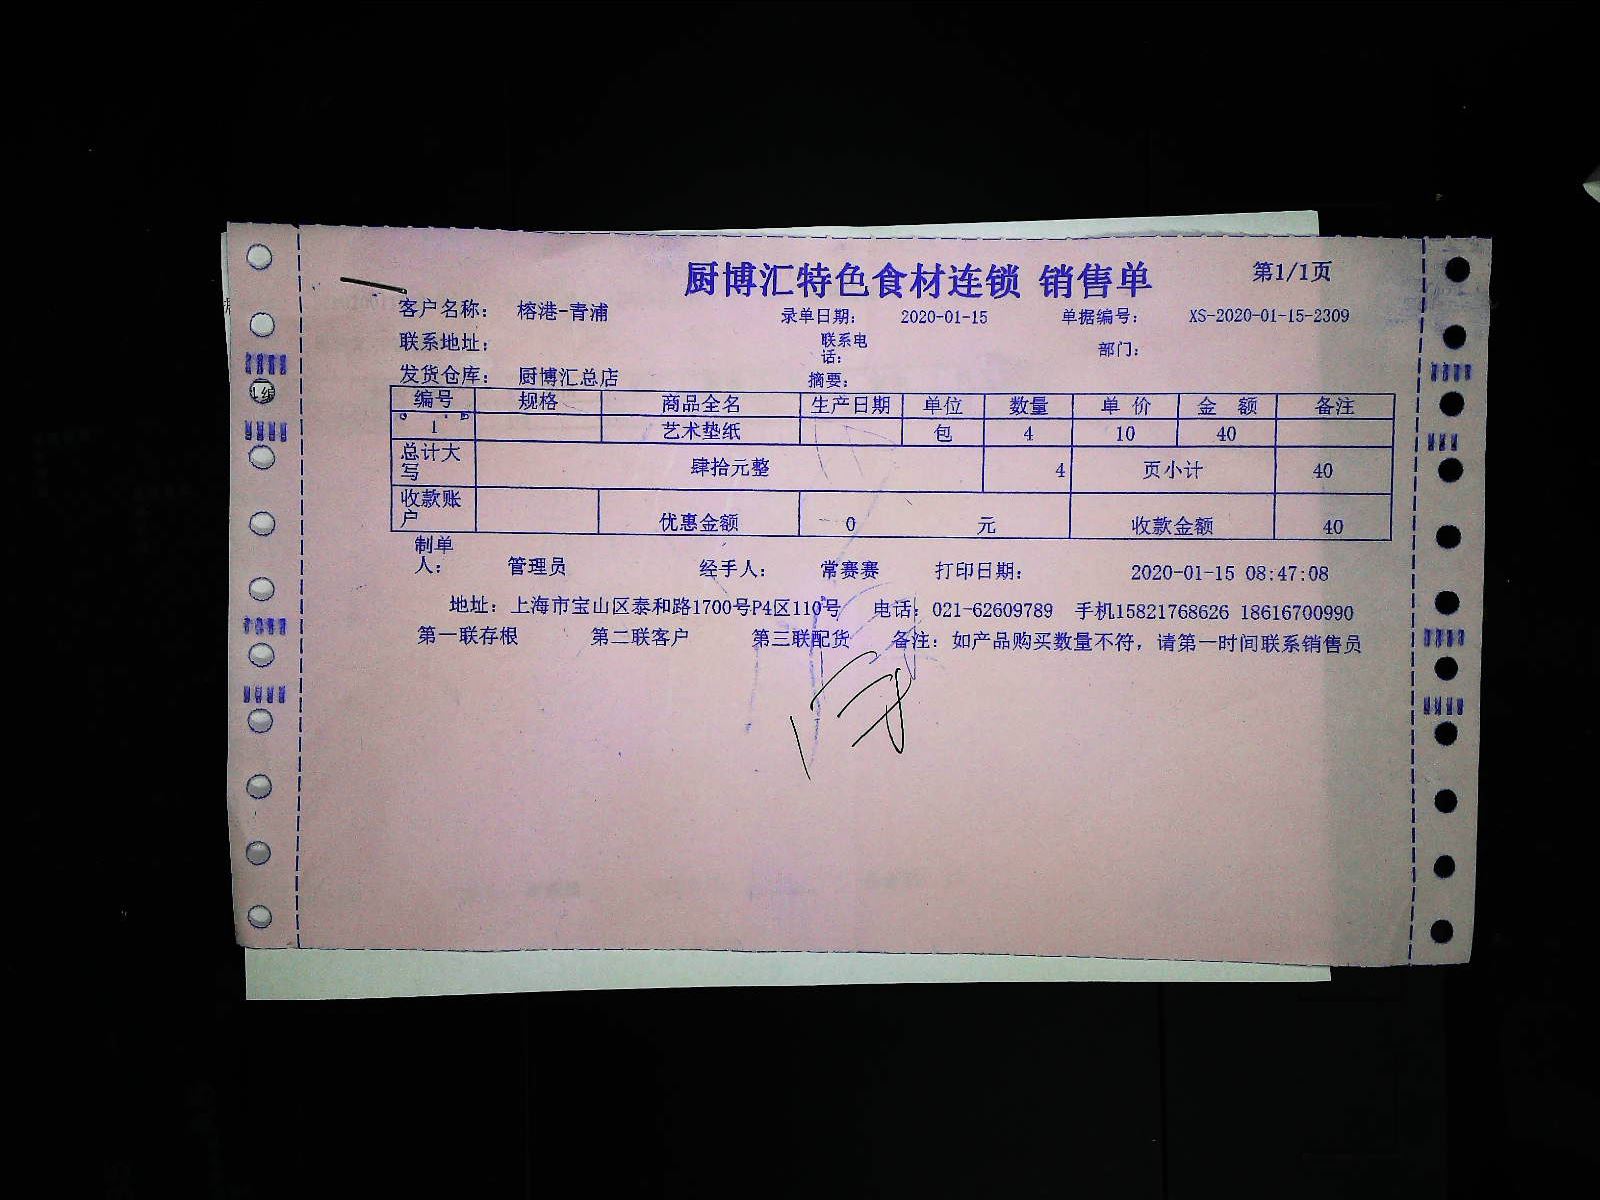 厨博汇特色食材连锁 销售单 第1/1页
客户名称： 榕港-青浦 录单日期： 2020-01-15 单据编号： XS-2020-01-15-2309
联系地址： 联系电话： 部门：
发货仓库： 厨博汇总店 摘要：
编号 规格 商品全名 生产日期 单位 数量 单 价 金 额 备注
1 艺术垫纸 包 4 10 40
总计大写 肆拾元整 4 页小计 40
收款账户 优惠金额 0 元 收款金额 40
制单人： 管理员 经手人： 常赛赛 打印日期： 2020-01-15 08:47:08
地址：上海市宝山区泰和路1700号P4区110号 电话：021-62609789 手机15821768626 18616700990
第一联存根 第二联客户 第三联配货 备注：如产品购买数量不符，请第一时间联系销售员